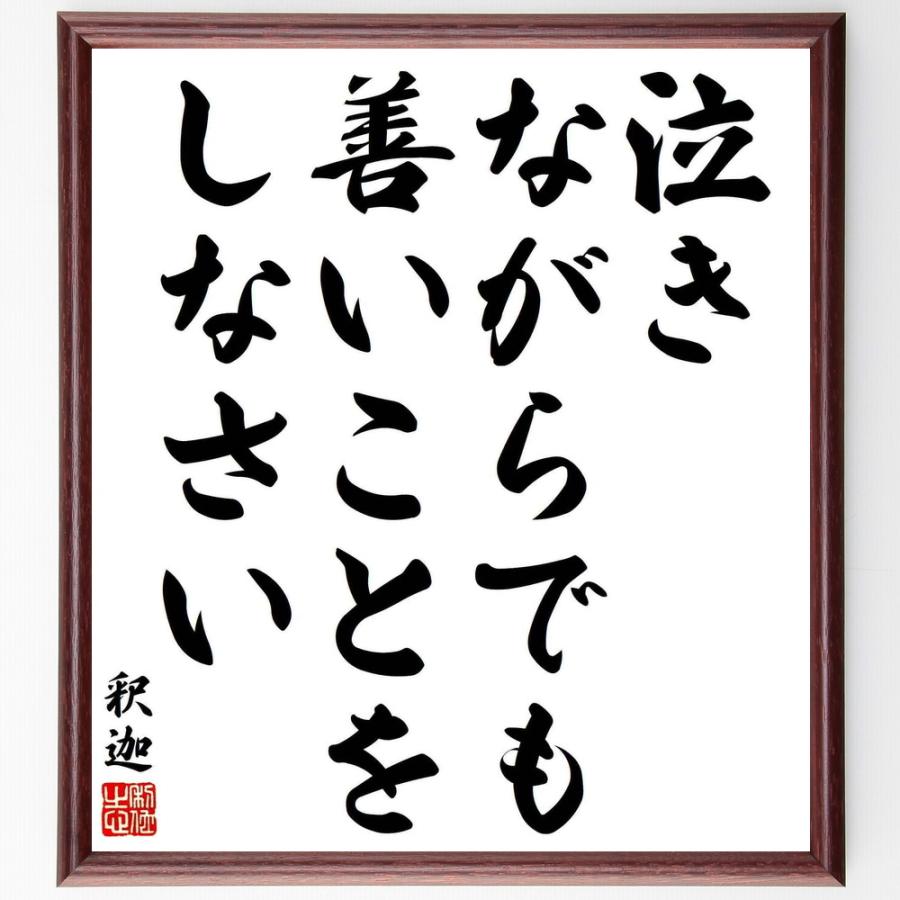 泣き
ながらでも
善いことを
しなさい
釈迦